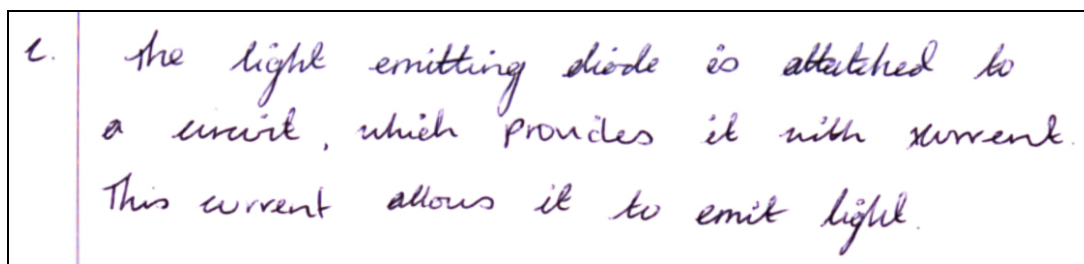 c. The light emitting diode is attatched to
a circuit, which provides it with current.
This current allows it to emit light.